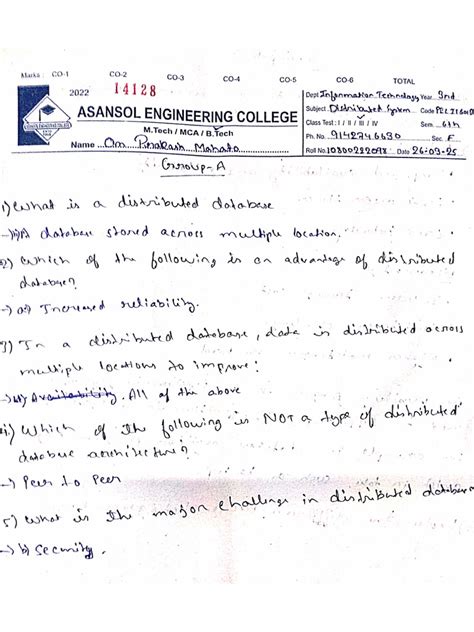 Marks : CO-1 CO-2 CO-3 CO-4 CO-5 CO-6 TOTAL
2022 14128
ASANSOL ENGINEERING COLLEGE
M.Tech / MCA / B.Tech
Name Om Prakash Mahato
Dept Information Technology Year 3rd
Subject Distributed System Code
Class Test : I / II / III / IV Sem. 6th
Ph. No. 9142746630 Sec F
Roll No. 10800222098 Date 26-03-25
Group-A
1) What is a distributed database
→ b) A database stored across multiple location.
2) Which of the following is an advantage of distributed
database?
→ a) Increased reliability.
3) In a distributed database, data is distributed across
multiple locations to improve:
→ Availability. All of the above
Which of the following is NOT a type of distributed
database architecture?
→ Peer to Peer
5) What is the major challenge in distributed database
→ b) Security.